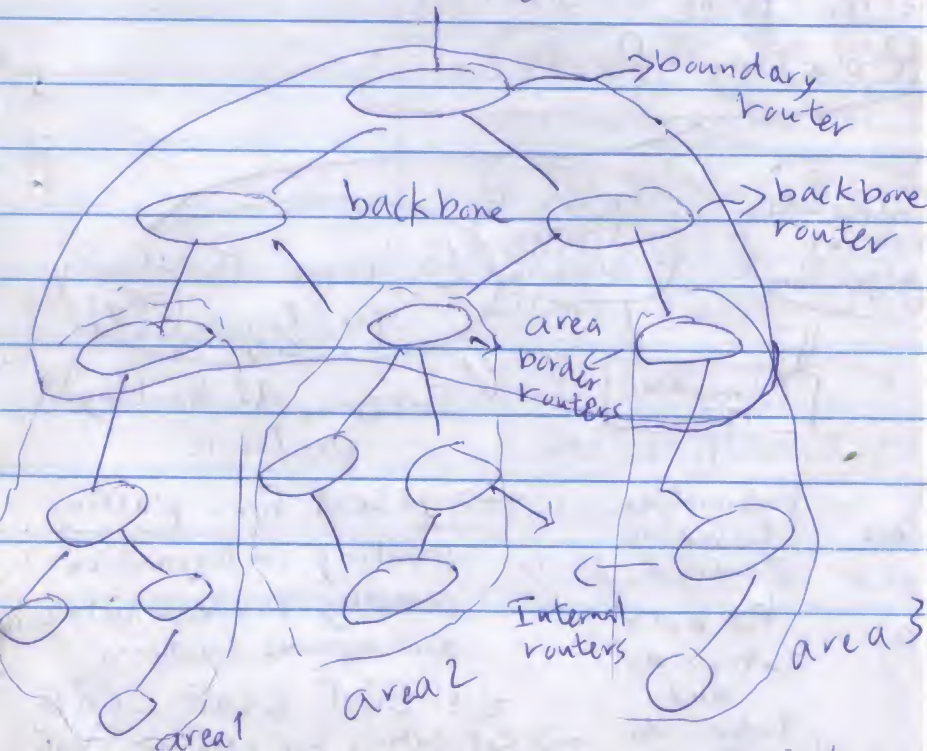 boundary
router
backbone
backbone
router
area
border
routers
Internal
routers
area 3
area 2
area 1